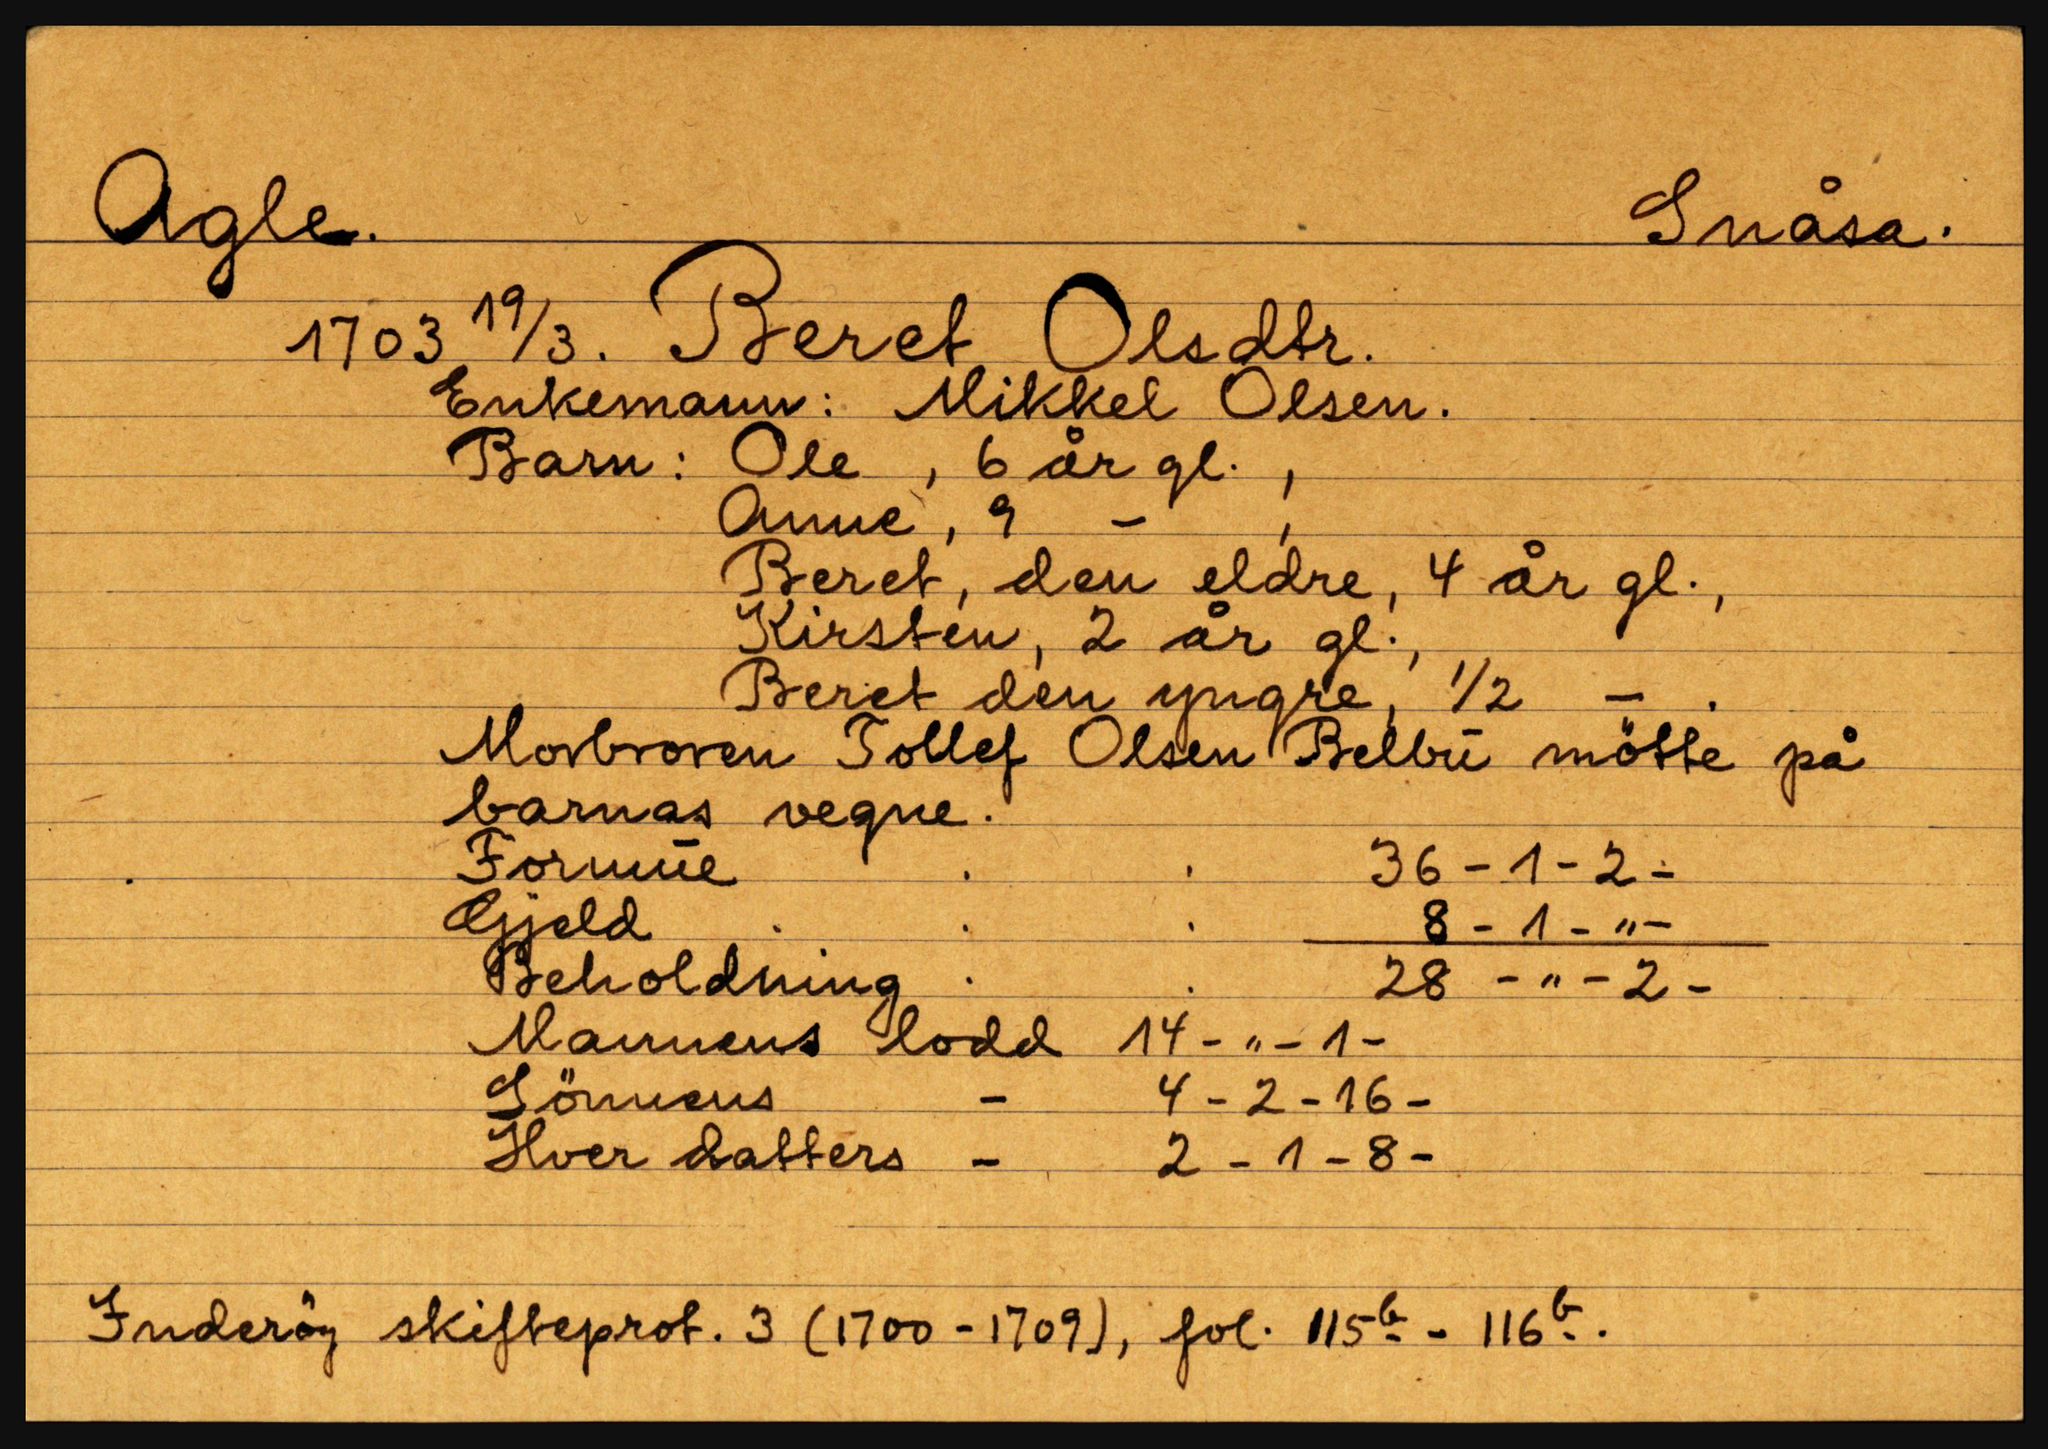 Agle. Snåsa.
1703 19/3. Beret Olsdtr.
Enkemann: Mikkel Olsen.
Barn: Ole, 6 år gl.,
Anne, 9 - ,
Beret, den eldre, 4 år gl.,
Kirsten, 2 år gl.,
Beret den yngre, 1/2 - .
Morbroren Tollef Olsen Belbū mötte på
barnas vegne.
Formūe . . 36 - 1 - 2 -
Gjeld . . . 8 - 1 - " -
Beholdning . . 28 - " - 2 -
Mannens lodd 14 - " - 1 -
Sönnens - 4 - 2 - 16 -
Hver datters - 2 - 1 - 8 -
Inderöy skifteprot. 3 (1700 - 1709), fol. 115b - 116b.